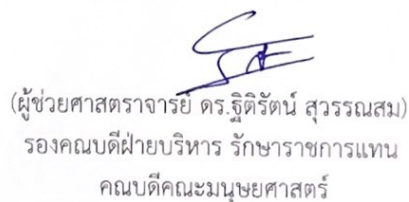 (ผู้ช่วยศาสตราจารย์ ดร.ฐิติรัตน์ สุวรรณสม)
รองคณบดีฝ่ายบริหาร รักษาราชการแทน
คณบดีคณะมนุษยศาสตร์